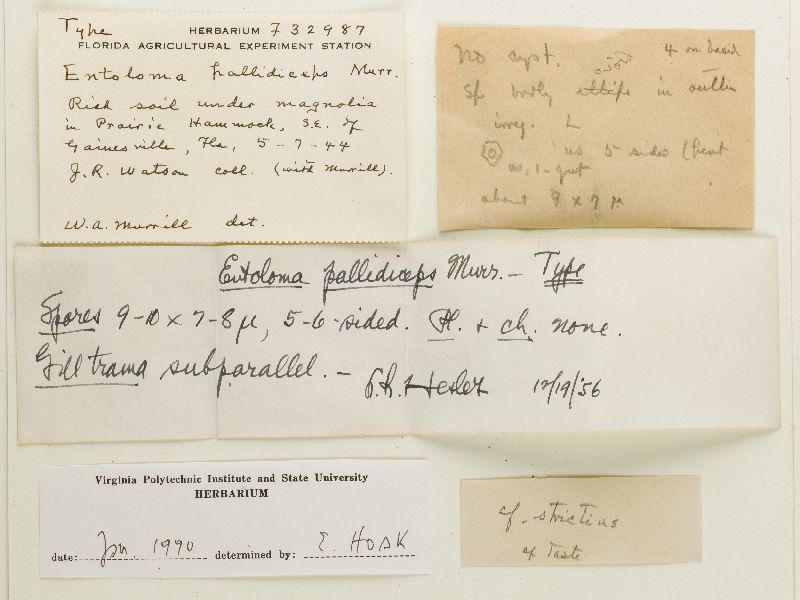 Type HERBARIUM F 32987
FLORIDA AGRICULTURAL EXPERIMENT STATION
Entoloma pallidiceps Murr.
Rich soil under magnolia
in Prairie Hammock, S.E. of
Gainesville, Fla, 5-7-44
J.R. Watson coll. (with Murrill).
W.A. Murrill det.
No cyst. 4 on basid
Sp in outlin
irreg.
no 5 sides (bent
w. 1-gut
about 9 x 7 μ
Entoloma pallidiceps Murr. - Type
Spores 9-10 x 7-8 μ, 5-6-sided. Pl. + ch. none.
Gill trama subparallel. -
L.R. Hesler 12/19/56
Virginia Polytechnic Institute and State University
HERBARIUM
date: Jan. 1990 determined by: E. HORAK
cf. strictius
cf taste